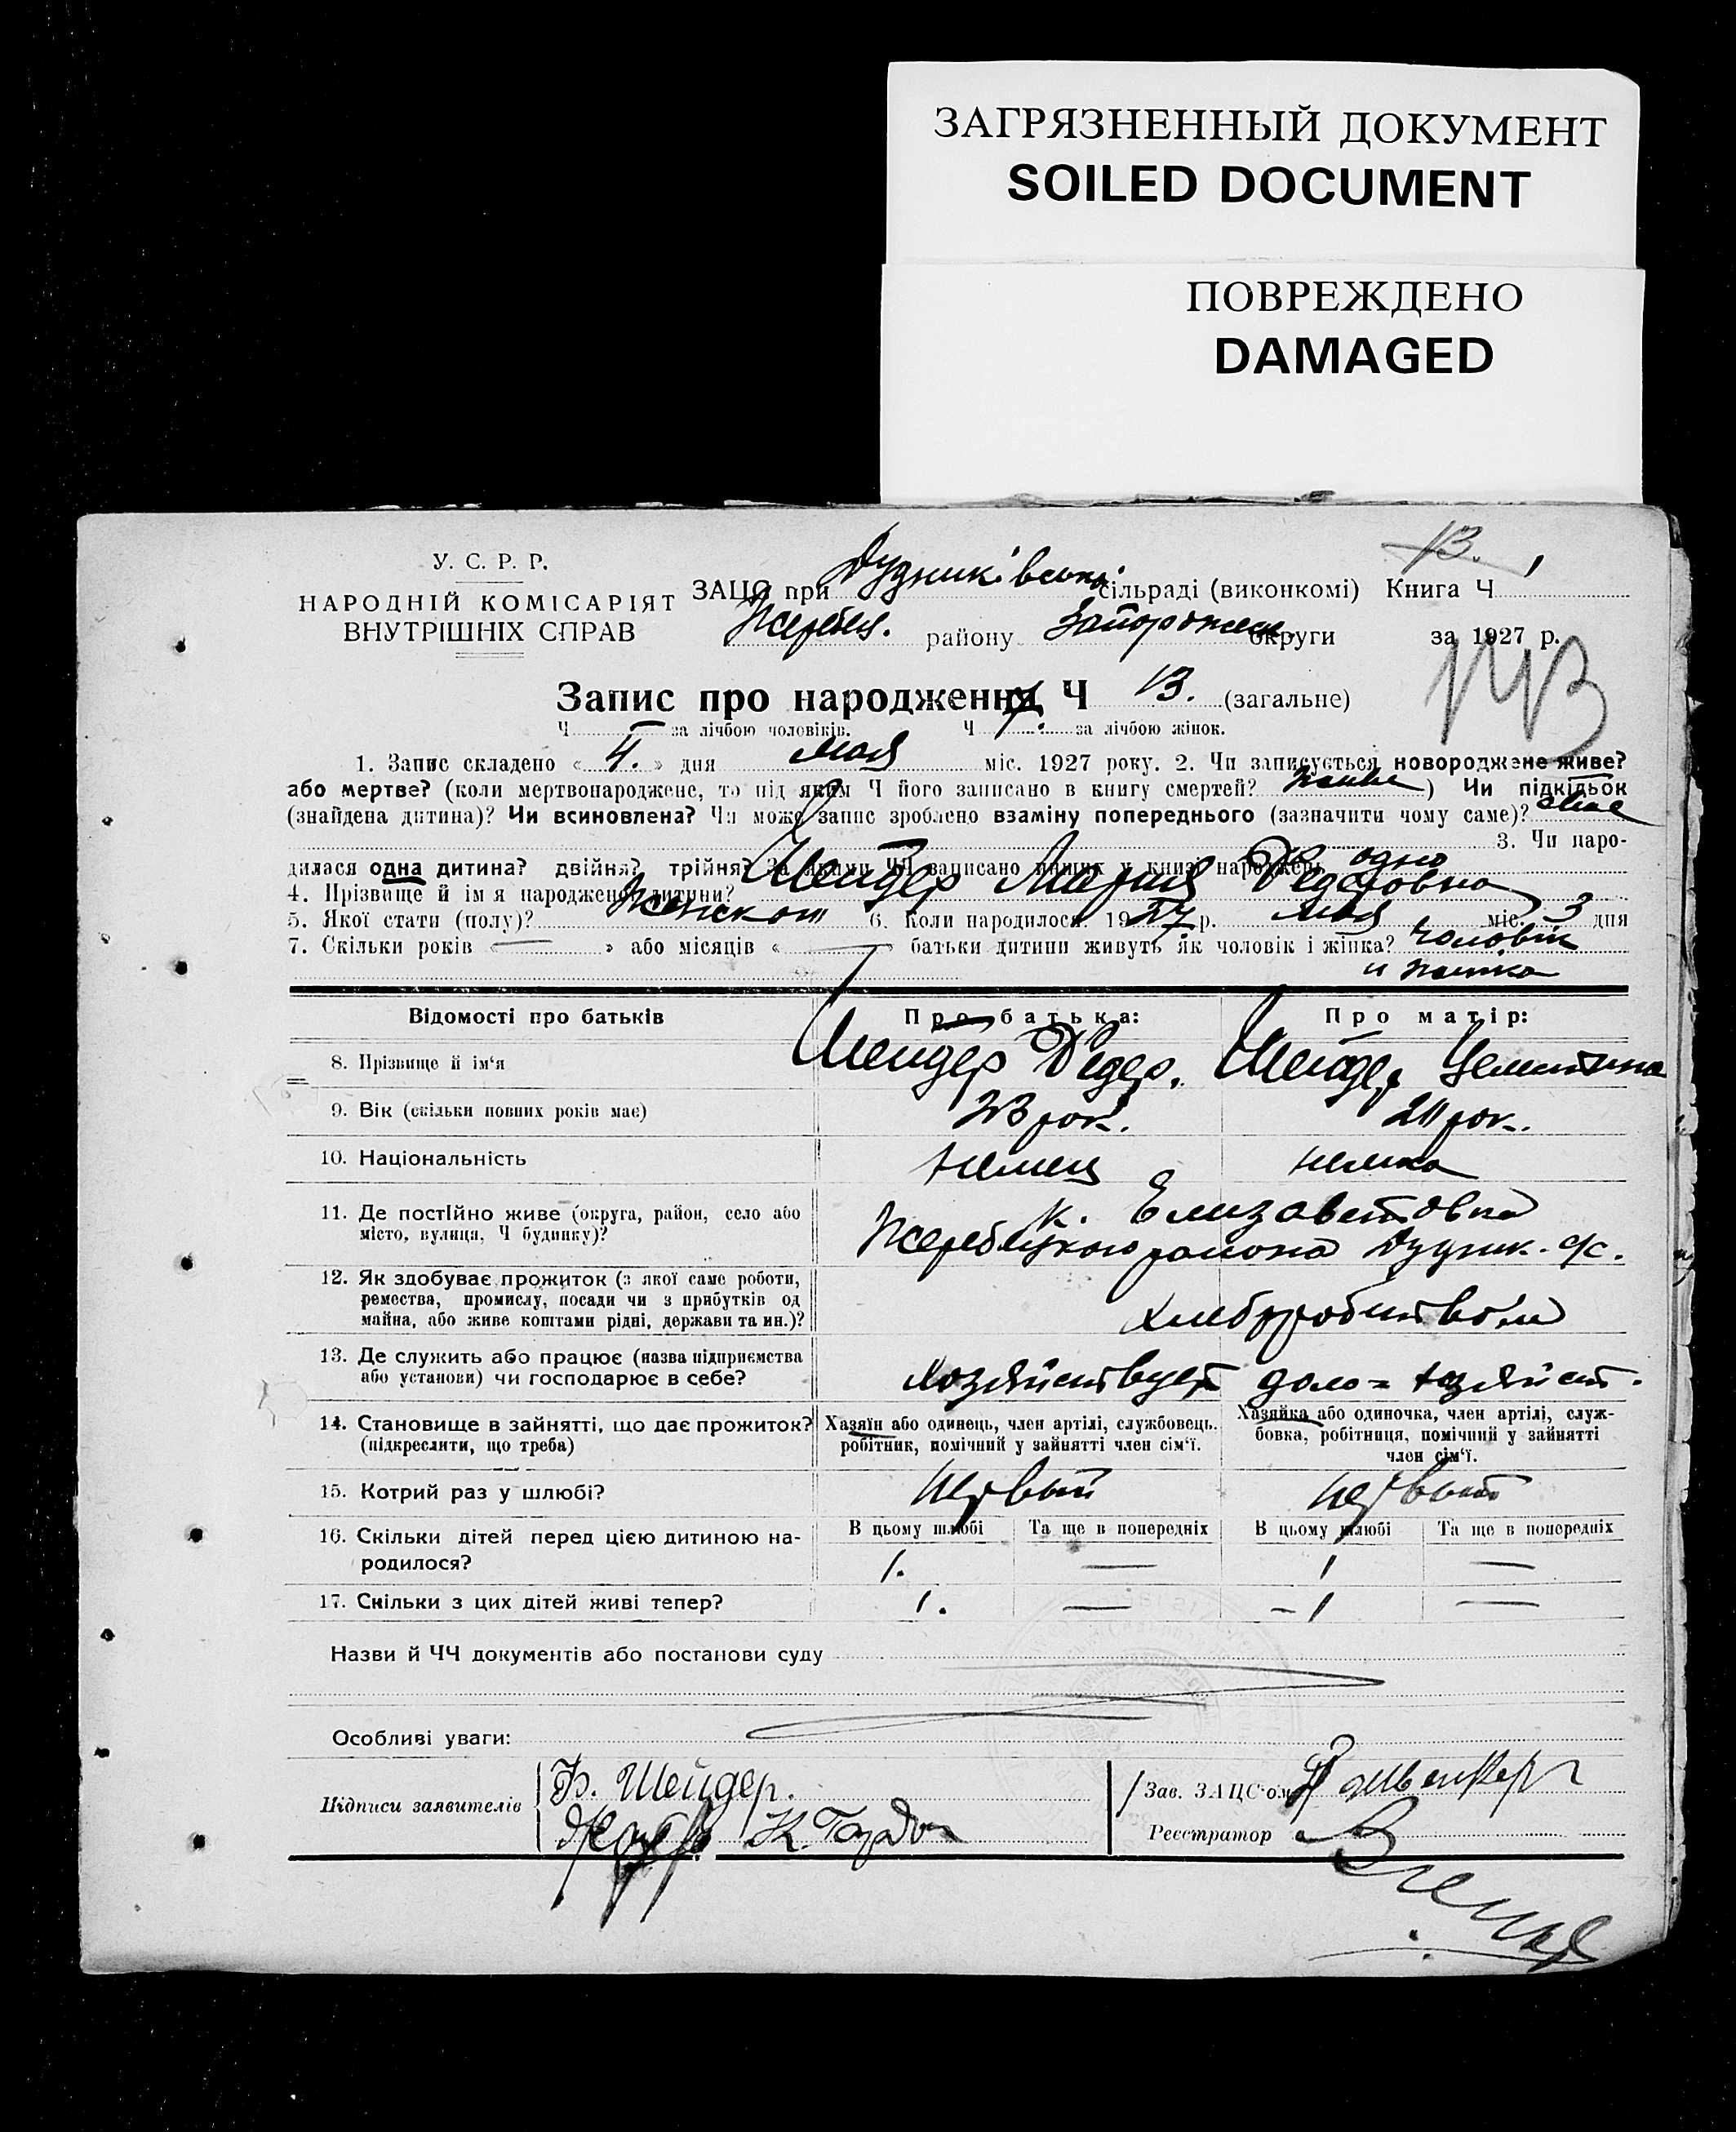 ЗАГРЯЗНЕННЫЙ ДОКУМЕНТ
SOILED DOCUMENT
ПОВРЕЖДЕНО
DAMAGED
У. С. Р. Р.
НАРОДНІЙ КОМІСАРІЯТ
ВНУТРІШНІХ СПРАВ
13.
ЗАЦС при Дудниківські сільраді (виконкомі) Книга Ч
Жеребец. району Запорожск. округи за 1927 р.
Запис про народження Ч 13. (загальне)
Ч — за лічбою чоловіків. Ч 7. за лічбою жінок.
1. Запис складено « 4. » дня мая міс. 1927 року. 2. Чи записується новороджене живе?
або мертве? (коли мертвонароджене, то під яким Ч його записано в книгу смертей? живе) Чи підкідьок
(знайдена дитина)? Чи всиновлена? Чи може запис зроблено взаміну попереднього (зазначити чому саме)?
3. Чи наро-
дилася одна дитина? двійня? трійня? За якими ЧЧ записано инших у книзі народжень одно
4. Прізвище й ім'я народженої дитини? Шейдер Мария Федоровна
5. Якої стати (полу)? Женской 6. Коли народилося 1927 р. мая міс. 3 дня
7. Скільки років « — » або місяців « — » батьки дитини живуть як чоловік і жінка? Чоловік
и жинка
Відомості про батьків Про батька: Про матір:
8. Прізвище й ім'я Шейдер Федер. Шейдер
9. Вік (скільки повних років має) 23 рок. 24 рок.
10. Національність немец немка
11. Де постійно живе (округа, район, село або
місто, вулиця, Ч будинку)?
к. Елизаветовка
Жеребецкого района Дудник. с/с.
12. Як здобуває прожиток (з якої саме роботи,
ремества, промислу, посади чи з прибутків од
майна, або живе коштами рідні, держави та ин.)?
хлеборобитвом
13. Де служить або працює (назва підприємства
або установи) чи господарює в себе?
хозяйствует домо= хозяйст.
14. Становище в зайнятті, що дає прожиток?
(підкреслити, що треба)
Хазяїн або одинець, член артілі, службовець.
робітник, помічний у зайнятті член сім'ї.
Хазяйка або одиночка, член артілі, служ-
бовка, робітниця, помічний у зайнятті
член сім'ї.
15. Котрий раз у шлюбі? первый первый
16. Скільки дітей перед цією дитиною на-
родилося?
В цьому шлюбі Та ще в попередніх В цьому шлюбі Та ще в попередніх
1. — 1 —
17. Скільки з цих дітей живі тепер? 1. — -1 —
Назви й ЧЧ документів або постанови суду
Особливі уваги:
Підписи заявителів
Ф. Шейдер.
Зав. ЗАЦС'ом
Реєстратор